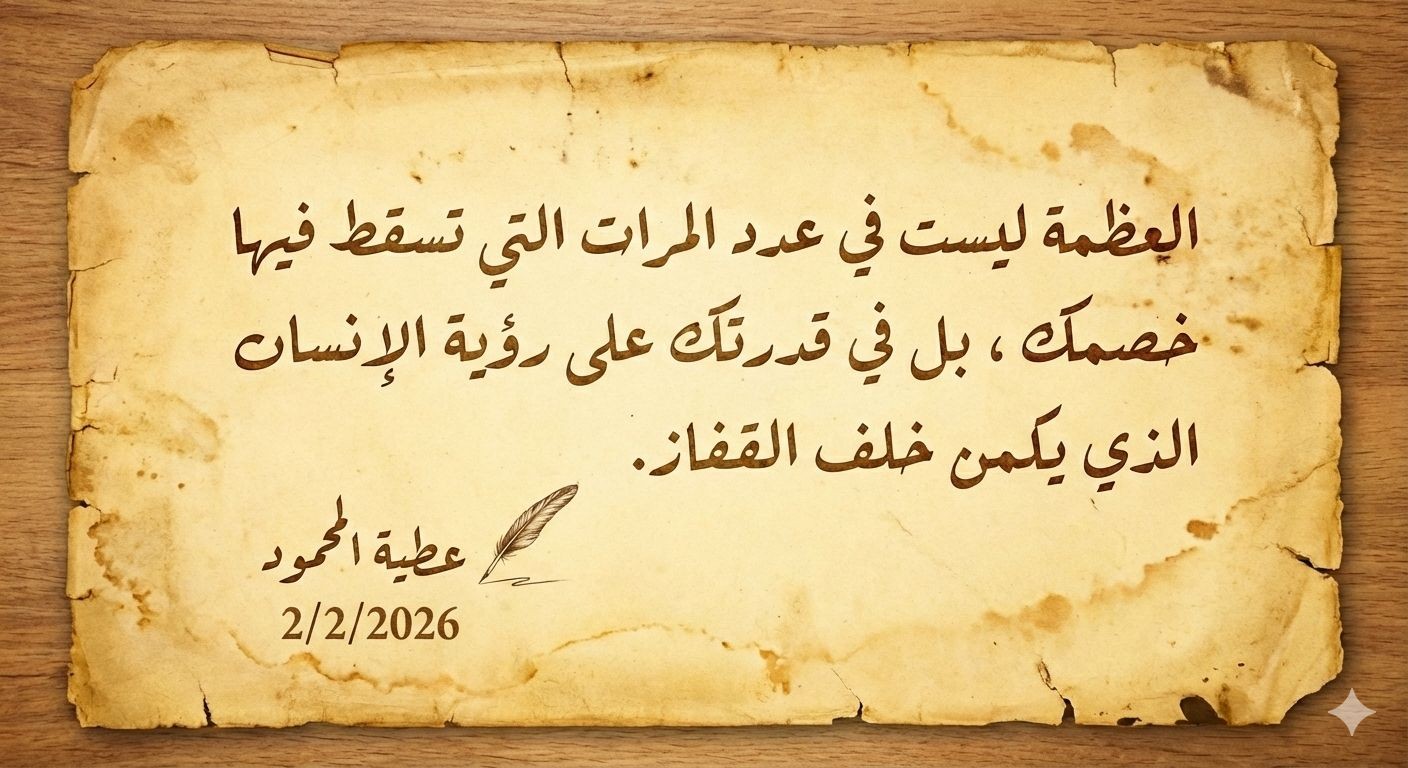 العظمة ليست في عدد المرات التي تسقط فيها
خصمك ، بل في قدرتك على رؤية الإنسان
الذي يكمن خلف القفاز.
عطية المحمود
2/2/2026